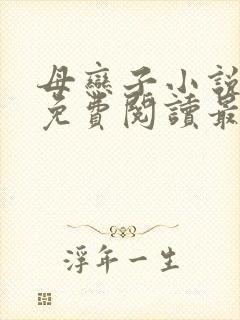 母戀子小說
免費閱讀最
浮年一生